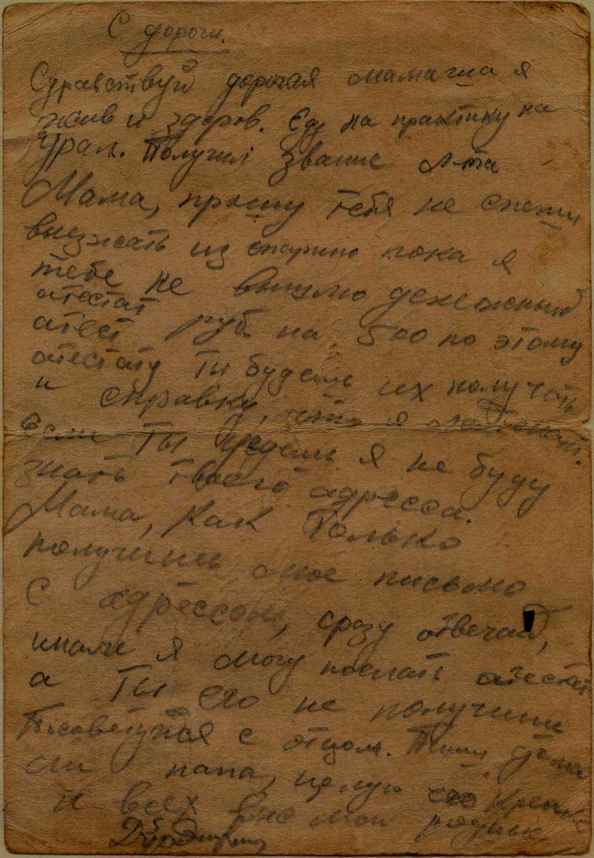 С дороги.
Сдравствуй дорогая мамачка я
жив и здоров. Еду на практику на
Урал. Получил звание л-та
Мама, прошу тебя не спеши
выезжать из пока я
тебе не вышлю денежный
атестат
атест руб. на 500 по этому
атестату ты будеш их получать
и справку, что я лейтенант.
Если ты уедеш я не буду
знать твоего адресса.
Мама, как только
получишь мое письмо
с адрессом, сразу отвечай,
иначе я могу послать атестат
а ты его не получиш
Посоветуйся с отцом. Пиши дома
ли папа, целую его крепко
и всех вас мои родные